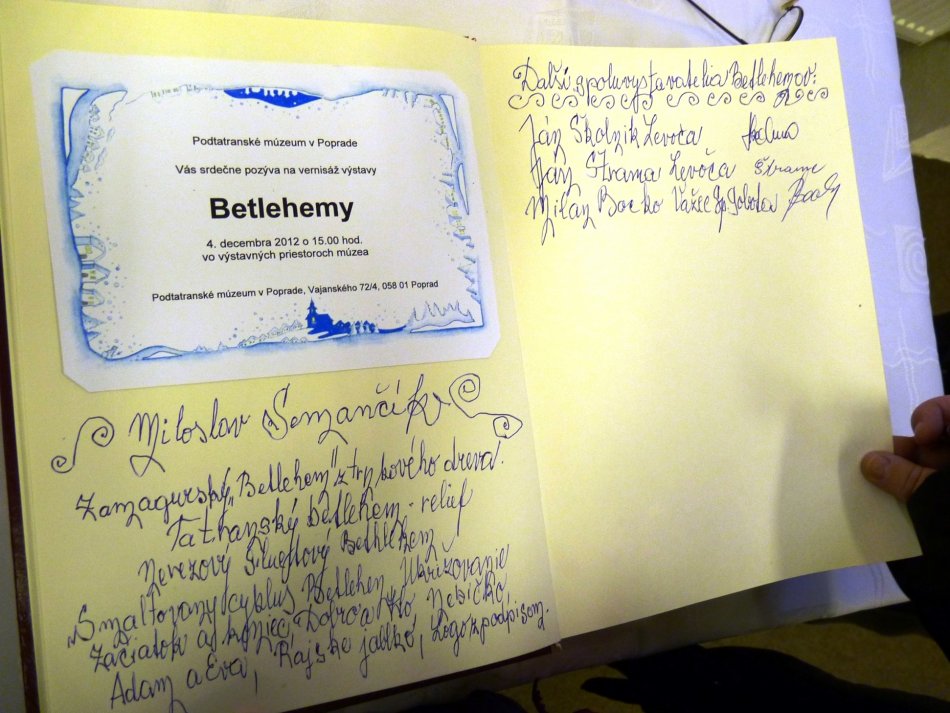 Podtatranské múzeum v Poprade
Vás srdečne pozýva na vernisáž výstavy
Betlehemy
4. decembra 2012 o 15.00 hod.
vo výstavných priestoroch múzea
Podtatranské múzeum v Poprade, Vajanského 72/4, 058 01 Poprad
Miloslav Semančík
Zamagurský „Betlehem" z trnkového dreva.
Tatranský betlehem - relief
Nerezový Betlehem
„Smaltovaný cyklus Betlehem, Ukrižovanie
Začiatok a koniec, Nebíčko,
Adam a Eva, Rajské jabĺčko, Logo z podpisom.
Ďalší spoluvystavatelia Betlehemov:
Ján Školník Levoča
Ján Štrama Levoča
Milan Bocko Važec